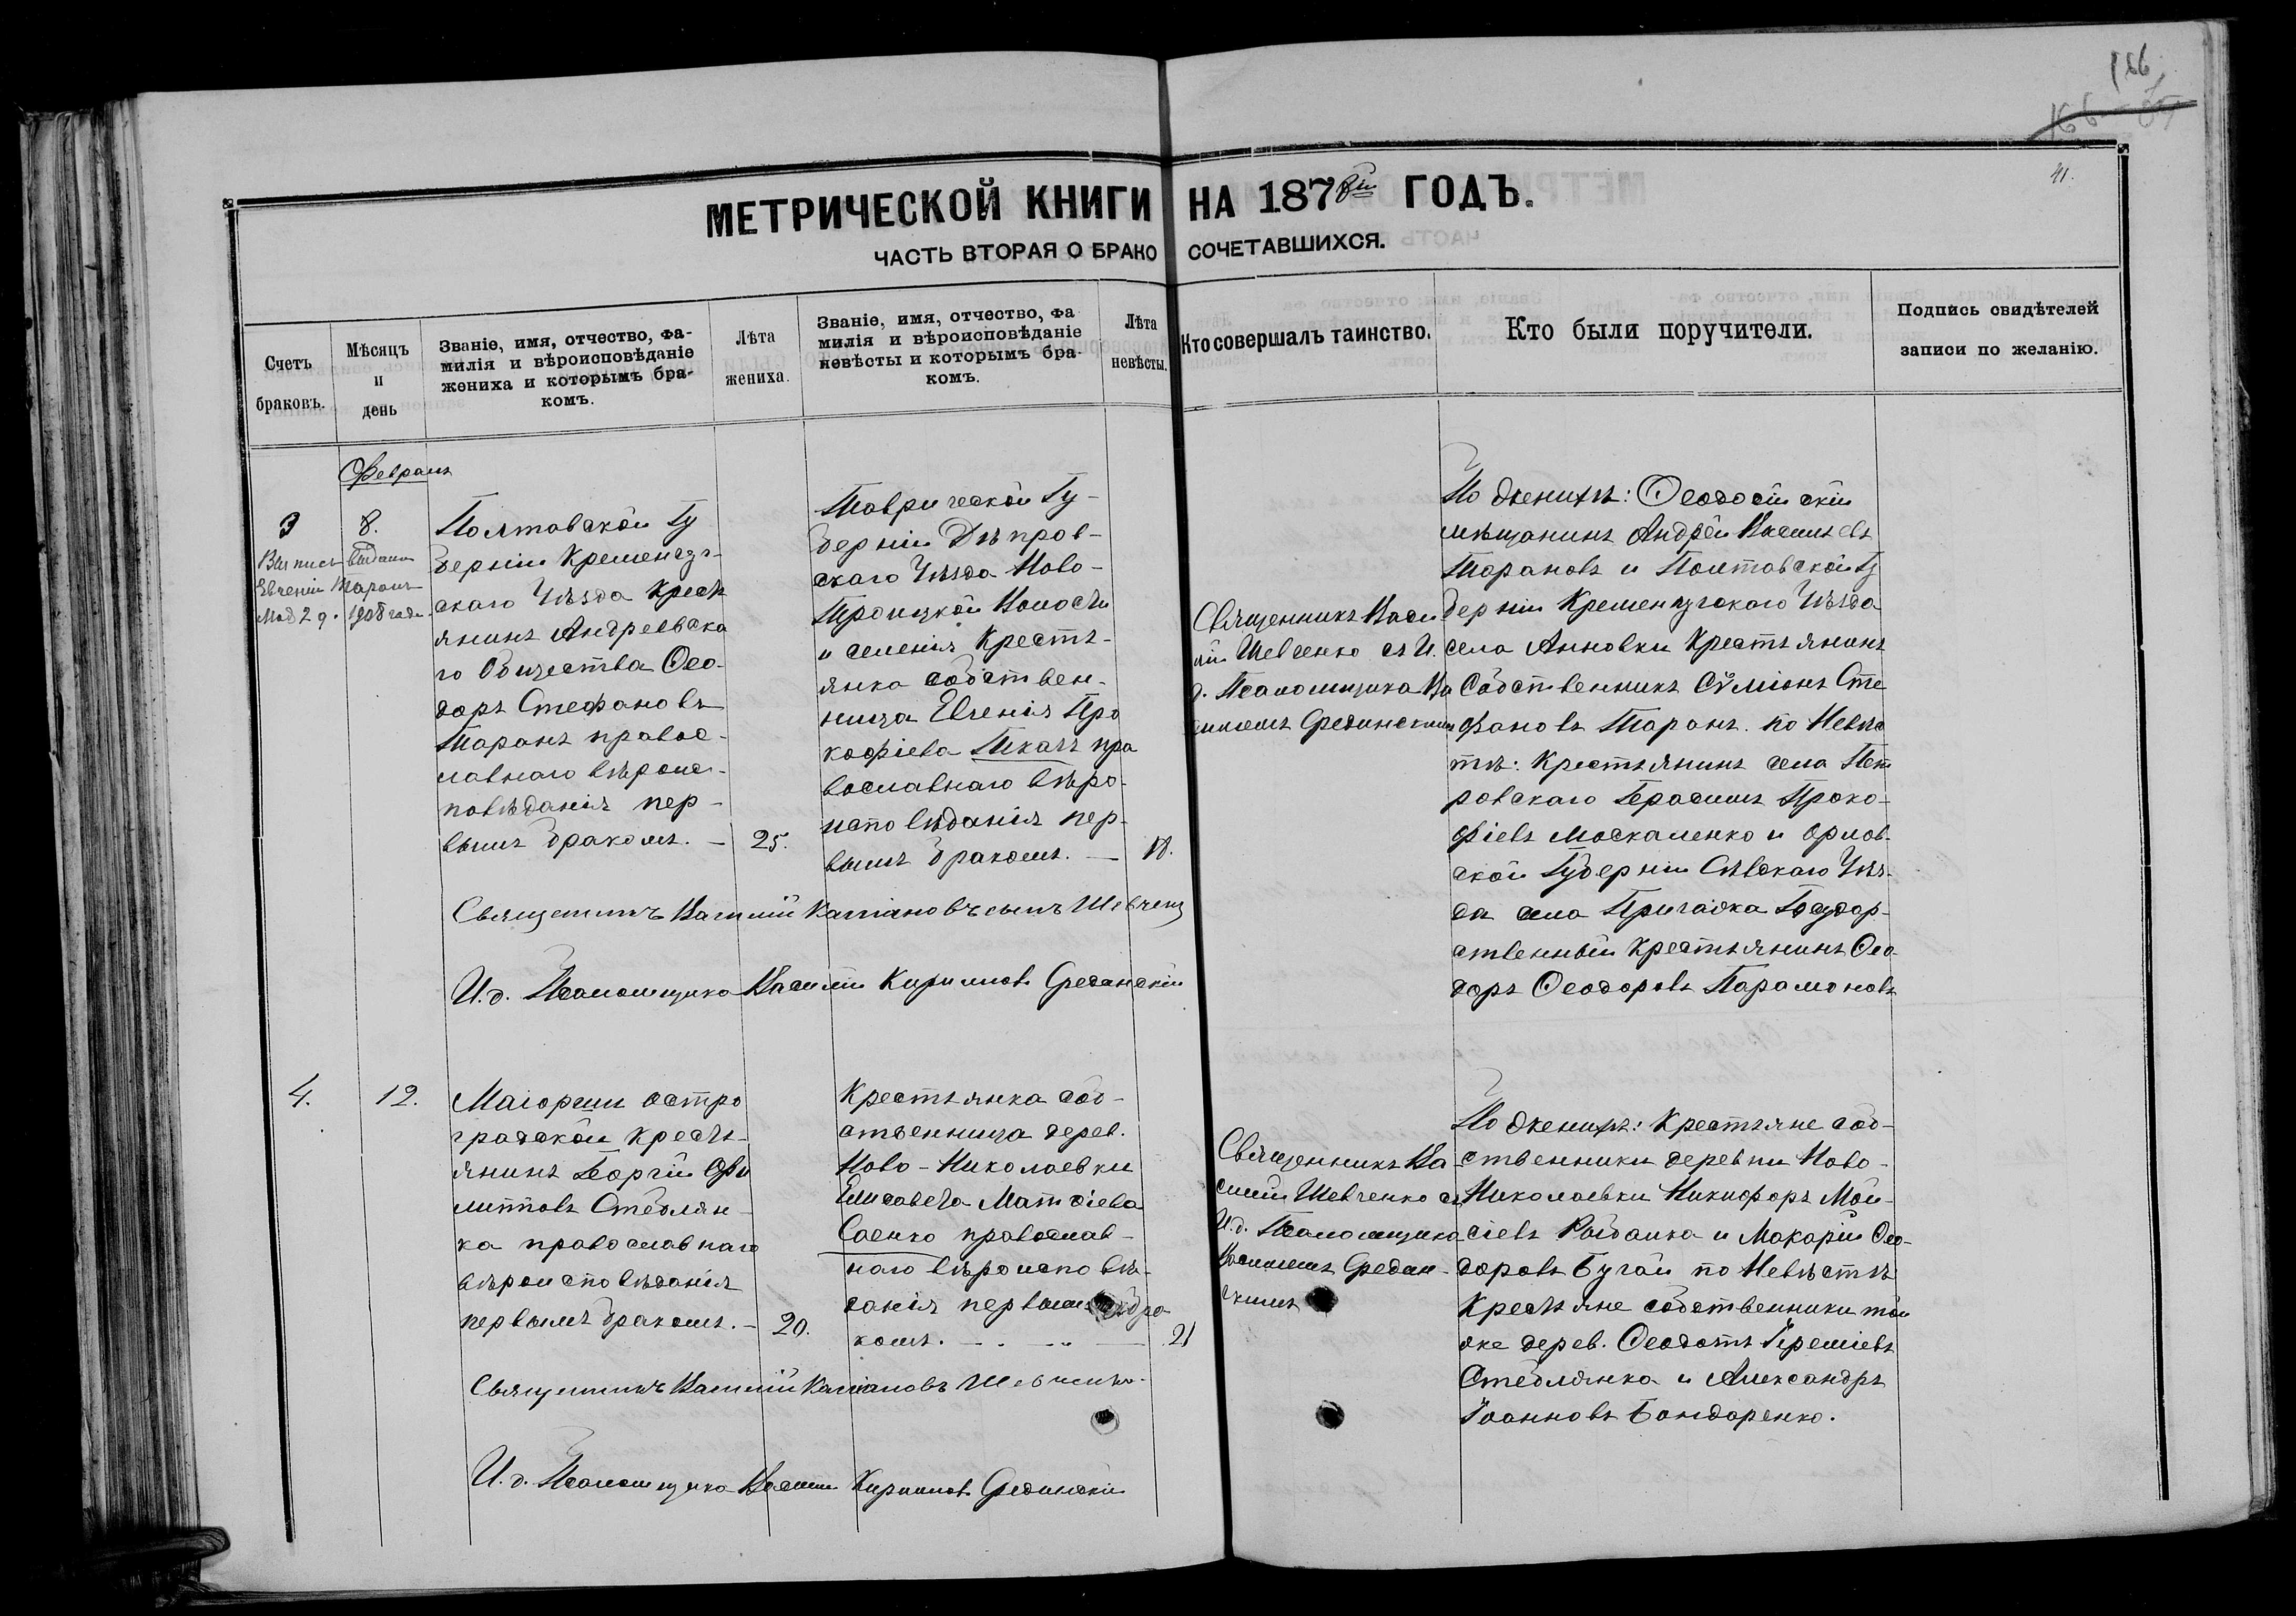 166
41.
МЕТРИЧЕСКОЙ КНИГИ НА 1878й ГОДЪ.
ЧАСТЬ ВТОРАЯ О БРАКОСОЧЕТАВШИХСЯ.
Счетъ
браковъ.
Мѣсяцъ
и
день
Званіе, имя, отчество, фа-
милія и вѣроисповѣданіе
жениха и которымъ бра-
комъ.
Лѣта
жениха.
Званіе, имя, отчество, фа
милія и вѣроисповѣданіе
невѣсты и которымъ бра-
комъ.
Лѣта
невѣсты.
Кто совершалъ таинство.
Кто были поручители.
Подпись свидѣтелей
записи по желанію.
Февраль
3
8.
Выпись выдана
Евгеніи Таранъ
1908 года.
Полтавской Гу
берніи Кременчуг-
скаго Уѣзда Кресть
янинъ Андреевска
го Общества Ѳео-
доръ Стефановъ
Таранъ правос-
лавнаго вѣроис-
повѣданія пер-
вымъ бракомъ. —
25.
Таврической Гу-
берніи Днѣпров-
скаго Уѣзда Ново-
Троицкой Волости
и селенія Кресть-
янка собствен-
ница Евгенія Про
кофіева Ткачъ пра
вославнаго вѣро-
исповѣданія пер-
вымъ бракомъ. —
18.
Священникъ Васи
лій Шевченко съ И.
д. Псаломщика Ва
силіемъ Срединскимъ
По женихѣ: Ѳеодосійскій
мѣщанинъ Андрей Васильевъ
Тарановъ и Полтавской Гу
берніи Кременчугскаго Уѣзда
села Анновки Крестьянинъ
Собственникъ Сѵміонъ Сте
фановъ Таранъ. по Невѣс
тѣ: Крестьянинъ села Пет
ровскаго Герасимъ Проко-
фіевъ Москаленко и Орлов-
ской Губерніи Сѣвскаго Уѣз-
да села Государ-
ственный Крестьянинъ Ѳео-
доръ Ѳеодоровъ Парамоновъ
Священникъ Василій Кассіановъ сынъ Шевченко
И. д. Псаломщика Василій Кирилловъ Срединскій
4.
12.
Маіорши Остро
градской Кресть-
янинъ Георгій Фи
липповъ Стеблян-
ка православнаго
вѣроисповѣданія
первымъ бракомъ. —
20.
Крестьянка соб-
ственница дерев.
Ново-Николаевки
Елисавета Матѳіева
Саенко православ-
наго вѣроисповѣ-
данія первымъ бра
комъ. —
21
Священникъ Ва-
силій Шевченко съ
И. д. Псаломщика
Василіемъ Средин-
скимъ
По женихѣ: Крестьяне соб-
ственники деревни Ново-
Николаевки Никифоръ Мои-
сіевъ Рыбалка и Макарій Ѳео-
доровъ Бугай по Невѣстѣ
Крестьяне собственники той
же дерев. Ѳеодотъ Іереміевъ
Стеблянка и Александръ
Іоанновъ Бондаренко.
Священникъ Василій Кассіановъ Шевченко.
И. д. Псаломщика Василій Кирилловъ Срединскій